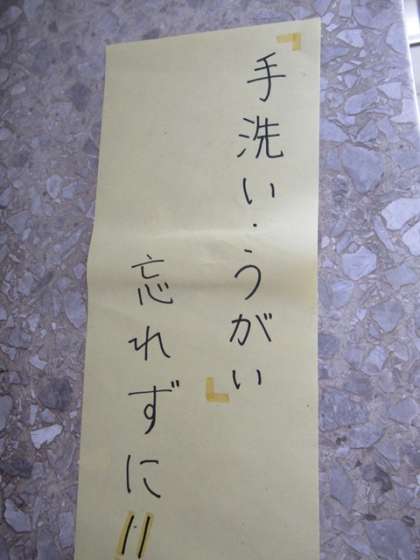 「手洗い・うがい」
忘れずに!!